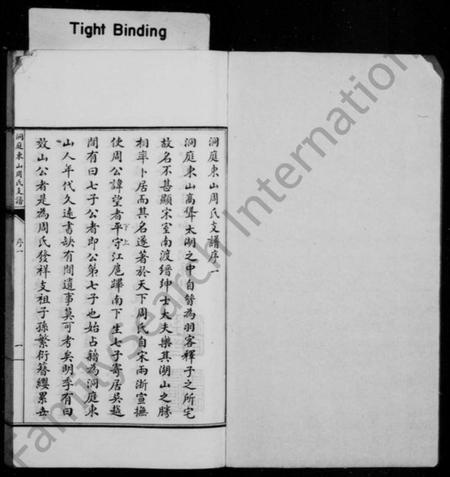 Tight Binding
洞庭東山周氏支譜序一
洞庭東山高聳太湖之中自昔為羽客釋子之所宅
故名不甚顯宋室南渡縉紳士大夫樂其湖山之勝
相率卜居而其名遂著於天下周氏自宋兩浙宣撫
使周公諱望者平守江扈蹕南下生七子寄居吳越
間有曰七子公者即公第七子也始占籍為洞庭東
山人年代久遠書缺有間遺事莫可考矣明季有曰
效山公者是為周氏發祥支祖子孫繁衍簪纓累世
洞庭東山周氏支譜
序一
一
FamilySearch International